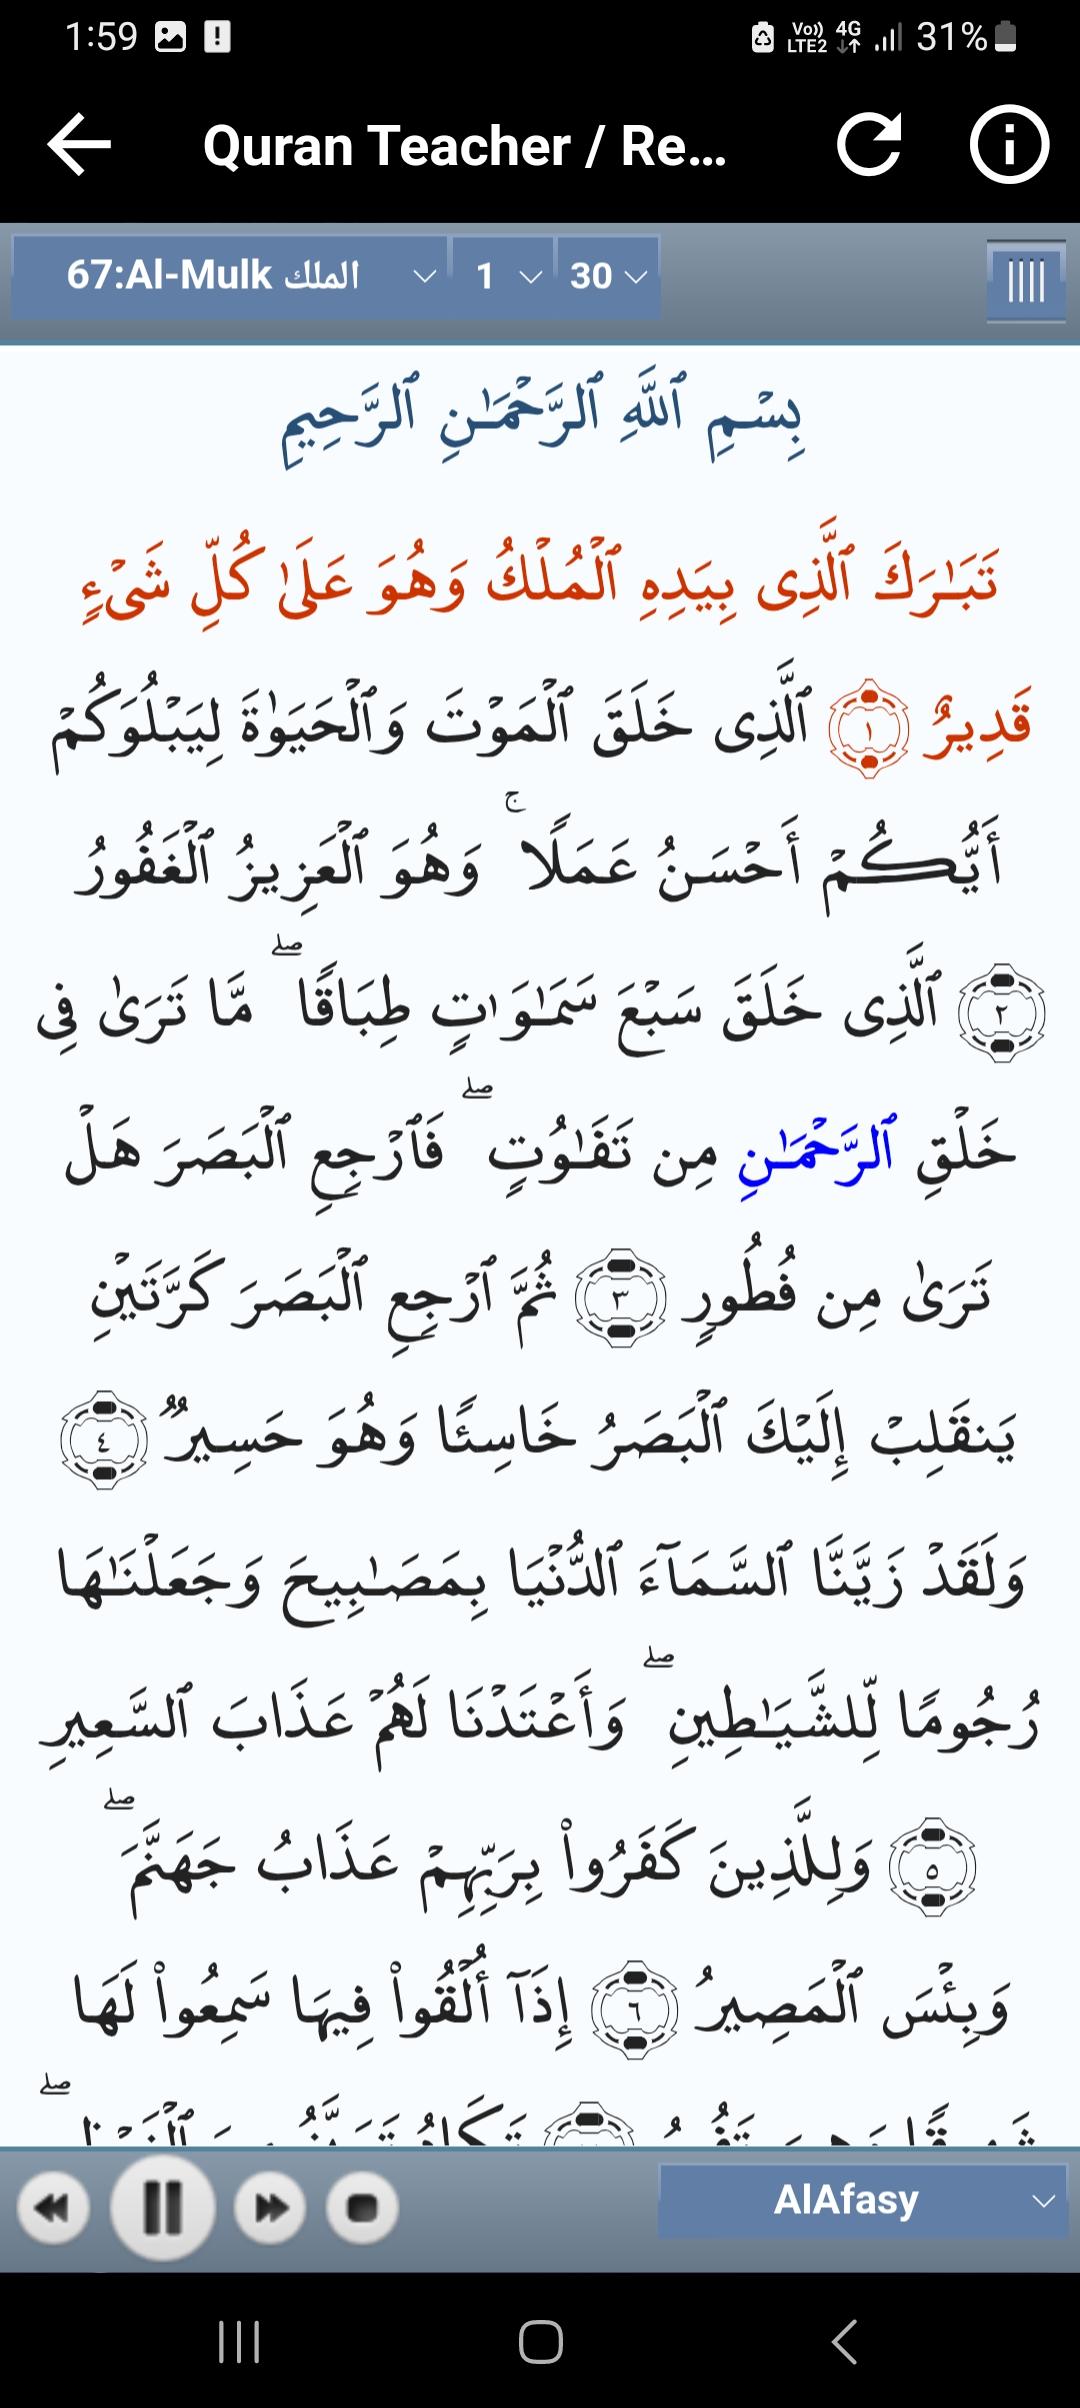 1:59
Vo)) LTE2 4G 31%
Quran Teacher / Re...
67:Al-Mulk الملك 1 30
بِسْمِ ٱللَّهِ ٱلرَّحْمَـٰنِ ٱلرَّحِيمِ
تَبَـٰرَكَ ٱلَّذِى بِيَدِهِ ٱلْمُلْكُ وَهُوَ عَلَىٰ كُلِّ شَىْءٍ
قَدِيرٌ ١ ٱلَّذِى خَلَقَ ٱلْمَوْتَ وَٱلْحَيَوٰةَ لِيَبْلُوَكُمْ
أَيُّكُمْ أَحْسَنُ عَمَلًا ۚ وَهُوَ ٱلْعَزِيزُ ٱلْغَفُورُ
٢ ٱلَّذِى خَلَقَ سَبْعَ سَمَـٰوَٰتٍ طِبَاقًا ۖ مَّا تَرَىٰ فِى
خَلْقِ ٱلرَّحْمَـٰنِ مِن تَفَـٰوُتٍ ۖ فَٱرْجِعِ ٱلْبَصَرَ هَلْ
تَرَىٰ مِن فُطُورٍ ٣ ثُمَّ ٱرْجِعِ ٱلْبَصَرَ كَرَّتَيْنِ
يَنقَلِبْ إِلَيْكَ ٱلْبَصَرُ خَاسِئًا وَهُوَ حَسِيرٌ ٤
وَلَقَدْ زَيَّنَّا ٱلسَّمَآءَ ٱلدُّنْيَا بِمَصَـٰبِيحَ وَجَعَلْنَـٰهَا
رُجُومًا لِّلشَّيَـٰطِينِ ۖ وَأَعْتَدْنَا لَهُمْ عَذَابَ ٱلسَّعِيرِ
٥ وَلِلَّذِينَ كَفَرُوا۟ بِرَبِّهِمْ عَذَابُ جَهَنَّمَ ۖ
وَبِئْسَ ٱلْمَصِيرُ ٦ إِذَآ أُلْقُوا۟ فِيهَا سَمِعُوا۟ لَهَا
AlAfasy